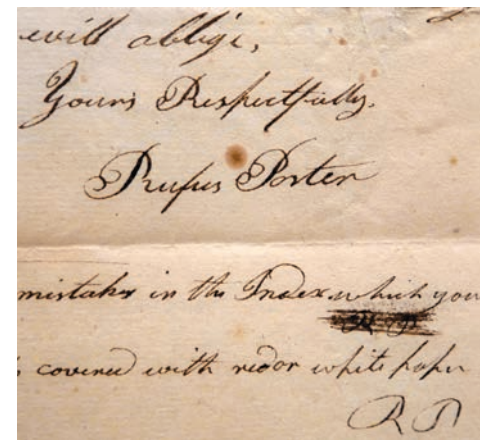 will oblige,
Yours Respectfully.
Rufus Porter
mistakes in the Index which you
covered with red or white paper
R P